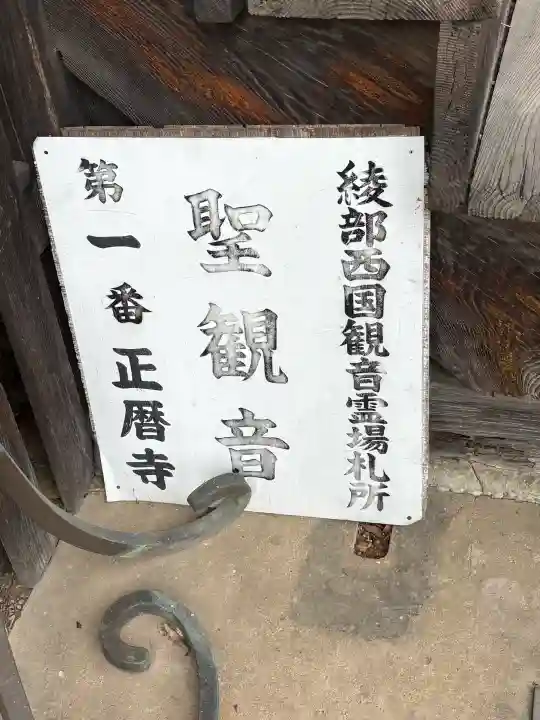 綾部西国観音霊場札所
聖観音
第一番正暦寺